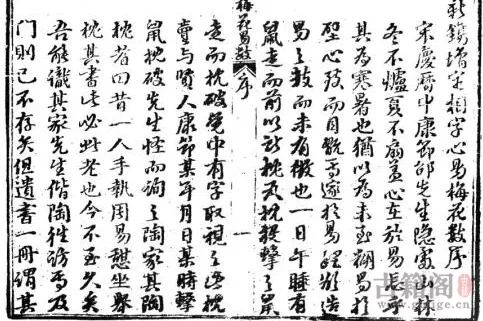 新鐫增定相字心易梅花數序
宋慶曆中康節邵先生隱處山林
冬不爐夏不扇蓋心在於易忘乎
其為寒暑也猶以為未至糊易於
壁心致而目玩焉邃於易理欲造
易之數而未有徵也一日午睡有
鼠走而前以所枕瓦枕投擊之鼠
梅花易數 序 一
走而枕破覺中有字取視之此枕
賣與賢人康節某年月日某時擊
鼠枕破先生怪而詢之陶家其陶
枕者曰昔一人手執周易憩坐舉
枕其書此必此老也今不至久矣
吾能識其家先生偕陶往訪焉及
門則已不存矣但遺書一冊謂其
古籍阁